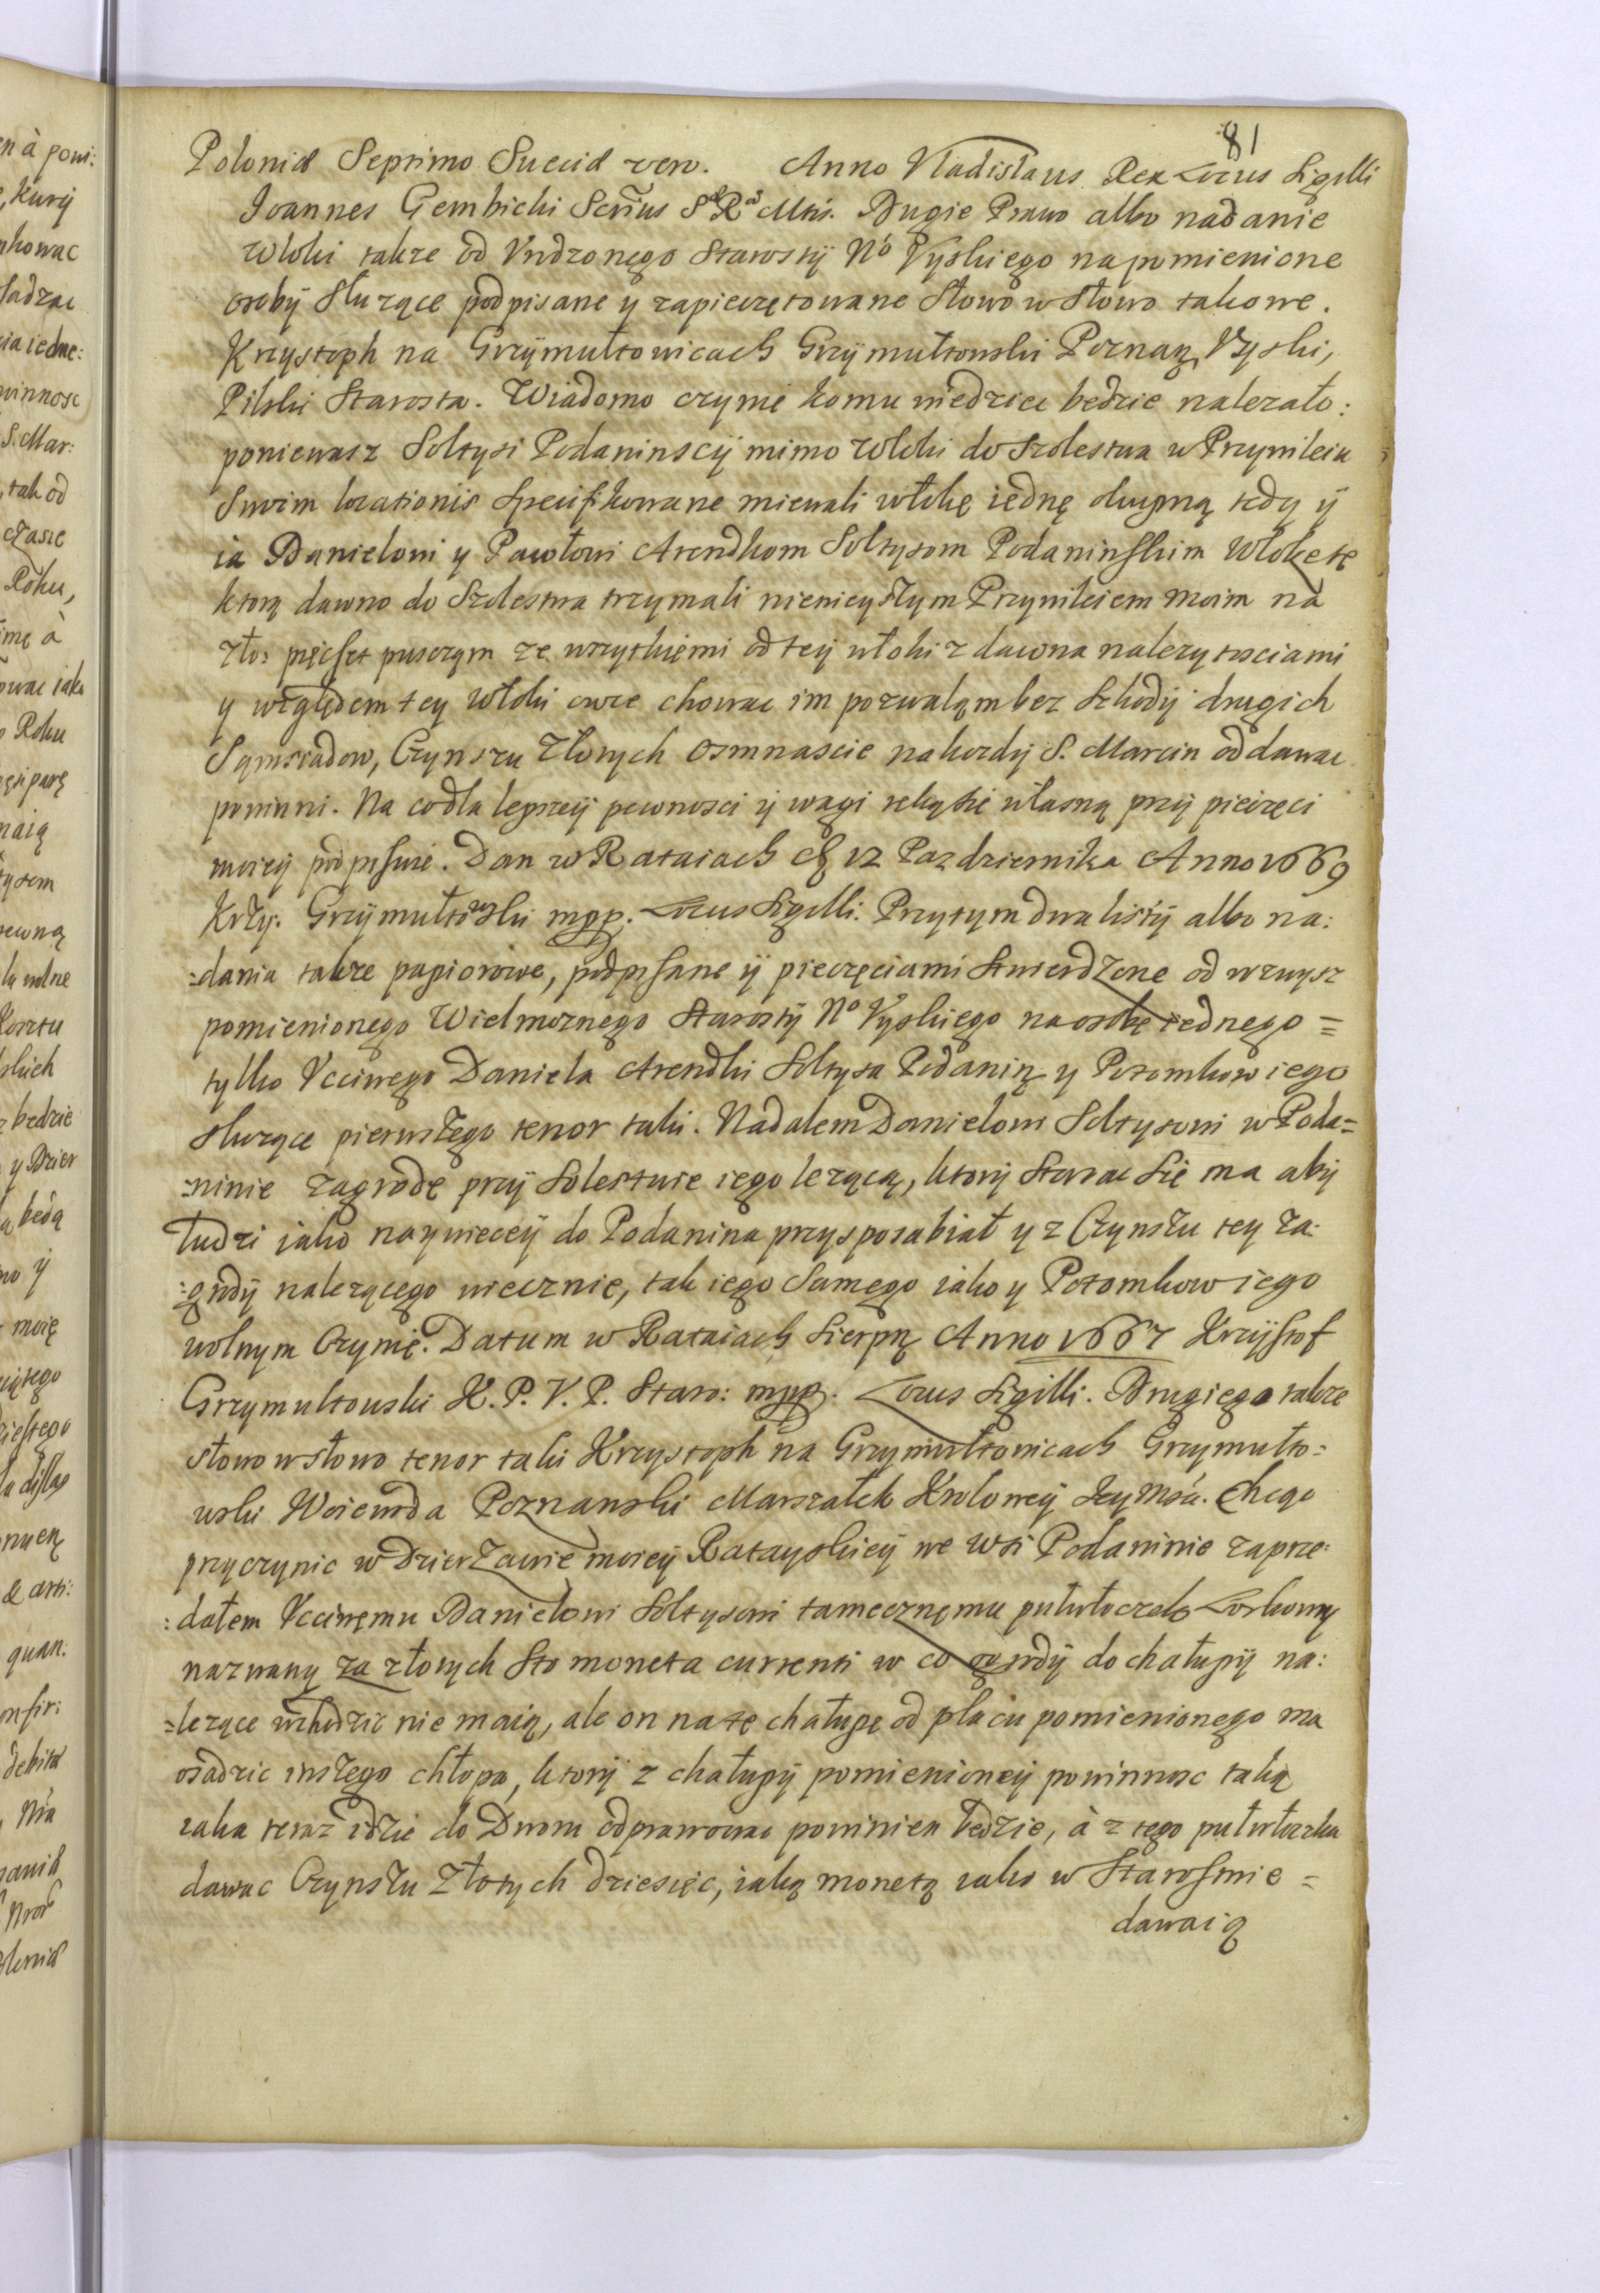 81
Poloniæ Septimo Sueciæ vero. Anno Vladislaus Rex Locus Sigilli
Joannes Gembicki Scrius S R Mtis. Drugie Prawo albo nadanie
włoki także od Vrodzonego Starosty No Vyskiego na pomienione
osoby służące podpisane y zapieczętowane Słowo w Słowo takowe.
Krzystoph na Grzÿmułtowicach Grzÿmułtowski Poznań, Vyski,
Pilski Starosta. Wiadomo czynię komu wiedziec bedzie nalezało:
poniewasz Soltysi Podaninscÿ mimo włoki do Szolestwa w Przywileiu
Swoim locationis Specifikowane miewali włokę iednę drugną tedy ÿ
ia Danielowi y Pawłowi Arendkom Soltysom Podaninskim włokę tę
ktorą dawno do Szolestwa trzymali ninieyszym Przywileiem moim na
zło: pięcset pusczam ze wszytkiemi od teÿ włoki z dawna nalezytosciami
y względem tey włoki owce chowac im pozwalam bez Szkodÿ drugich
Sąmsiadow, Czynszu Złotych osmnascie na kozdÿ S. Marcin oddawac
powinni. Na co dla lepszeÿ pewnosci ÿ wagi ręką swą własną przÿ pieczęci
moieÿ podpisuię. Dan w Rataiach 12 Pazdziernika Anno 1669
Krzy. Grzÿmułtowski mpp. Locus Sigilli. Przytym dwa listÿ albo na:
=dania także papiorowe, podpisane ÿ pieczęciami stwierdzone od wzwysz
pomienionego Wielmoznego Starostÿ No Vyskiego na osobę iednego =
tylko Vcciwego Daniela Arendki Soltysa Podanin y Potomkow iego
służące pierwszego tenor taki. Nadalem Danielowi Soltysowi w Poda=
=ninie zagrodę przÿ Solestwie iego lezącą, ktorÿ starac się ma abÿ
ludzi jako naywięceÿ do Podanina przysposabiał y z Czynszu tey za:
:grodÿ nalezącego wiecznie, tak iego Samego iako y Potomkow iego
wolnym Czynię. Datum w Rataiach Sierpn Anno 1667 Krzÿsztof
Grzymultouski K. P. V. P. Staro: mpp. Locus Sigilli. Drugiego także
słowo w słowo tenor taki Krzystoph na Grzymułtowicach Grzymułto=
wski Woiewoda Poznanski Marszałek Krolowey Jey Msci. Chcąc
przyczynic w Dzierzawie moieÿ Ratayskieÿ we wsi Podaninie zaprze:
:dałem Vcciwemu Danielowi Soltysowi tamecznemu pułwłoczek Loskowy
nazwany za złotych Sto moneta currenti w co ogrodÿ do chałupÿ na:
=lezące wchodzic nie maią, ale on na tę chałupę od placu pomienionego ma
osadzic inszego chłopa, ktorÿ z chałupÿ pomienioneÿ powinnosc taką
iaka teraz idzie do Dworu odprawowac powinien będzie, à z tego pułwłoczka
dawac Czynszu Złotych dziesięc, iaką monetą iako w Starostwie =
dawaią